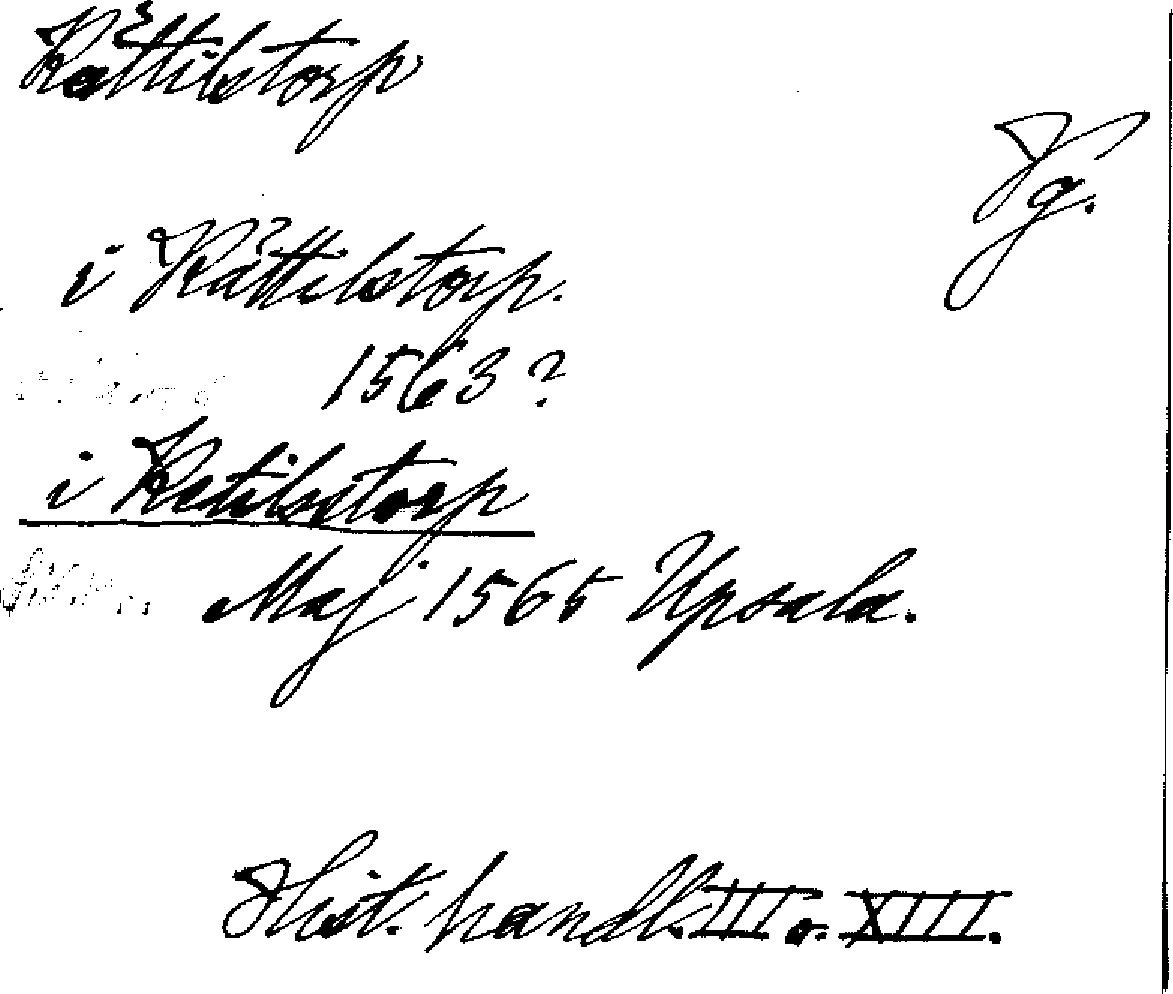 Kättilstorp
Vg.
i Kättilstorp.
1563?
i Ketilstorp
Maj 1565 Upsala.
Hist. handl. III o. XIII.